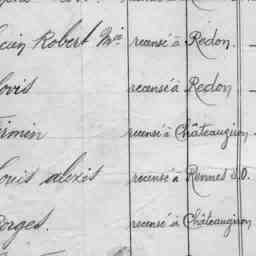 Robert Mie recensé à Redon.
recensé à Redon.
recensé à Châteaugiron
Louis alexis recensé à Rennes S.O.
recensé à Châteaugiron